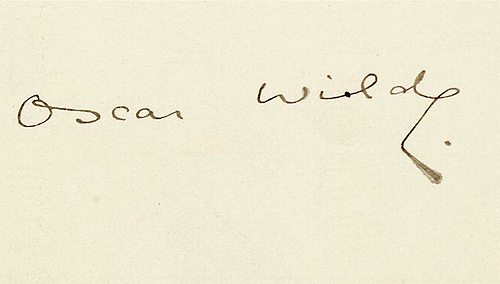 Oscar Wilde.